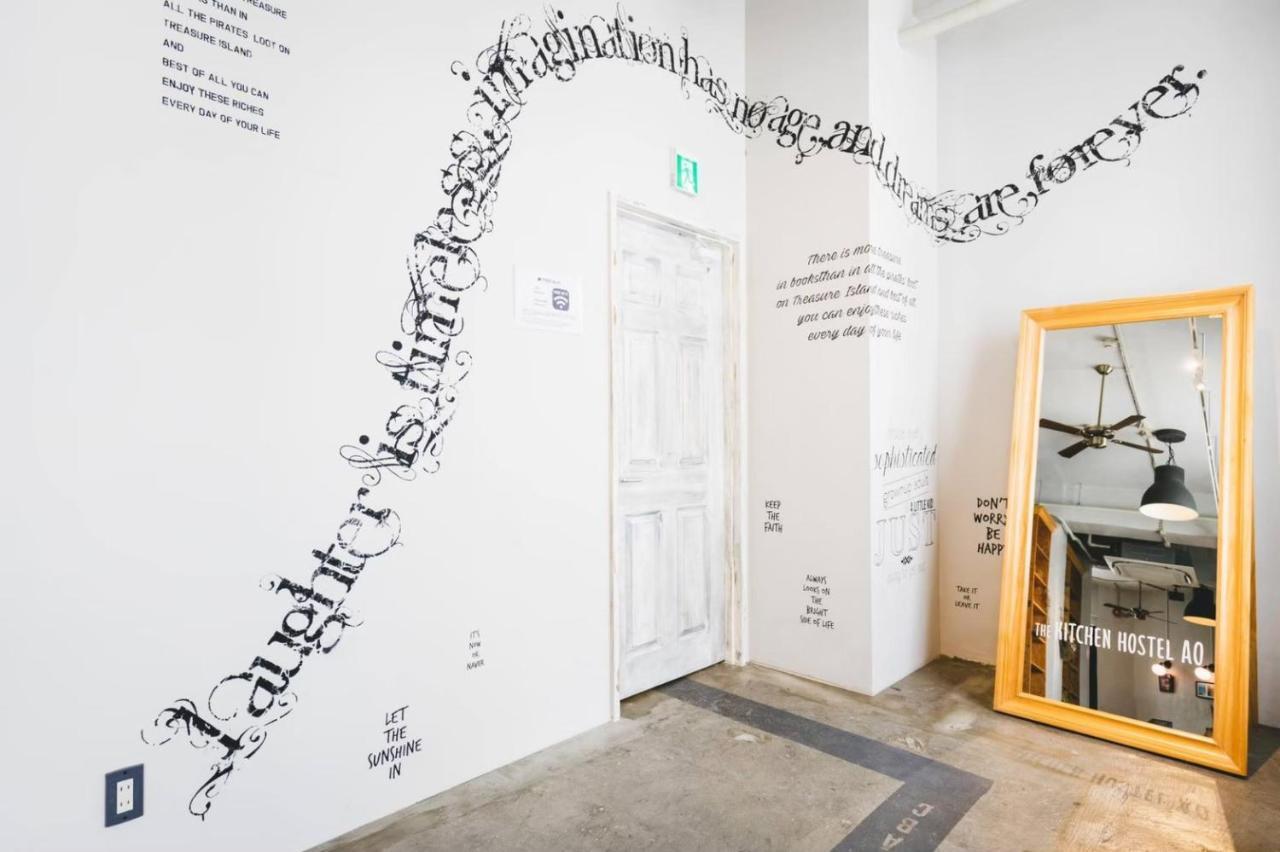 TREASURE
THAN IN
ALL THE PIRATES' LOOT ON
TREASURE ISLAND
AND
BEST OF ALL YOU CAN
ENJOY THESE RICHES
EVERY DAY OF YOUR LIFE
Laughter is timeless, imagination has no age, and dreams are forever.
There is more treasure
in booksthan in all the pirates' loot
on Treasure Island and best of all,
you can enjoy these riches
every day of your life
sophisticated
grownup souls
A LITTLE KID
JUST
KEEP
THE
FAITH
ALWAYS
LOOKS ON
THE
BRIGHT
SIDE OF LIFE
DON'T
WORRY
BE
HAPPY
TAKE IT
OR
LEAVE IT
IT'S
NOW
OR
NAVER
LET
THE
SUNSHINE
IN
THE KITCHEN HOSTEL AO